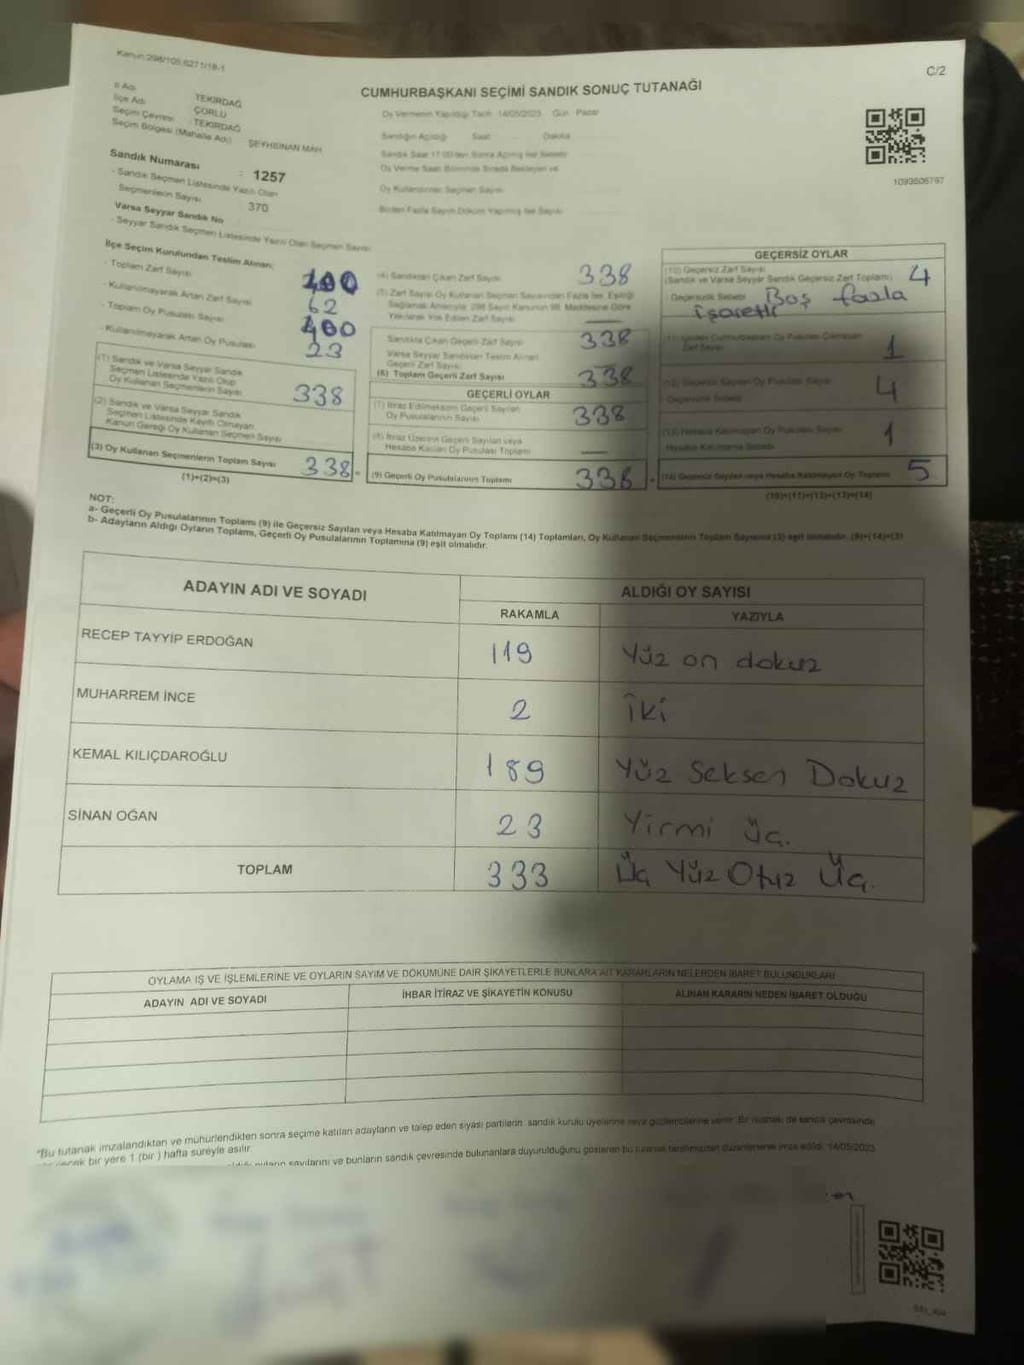 Kanun:298/105,6271/18-1
C/2
CUMHURBAŞKANI SEÇİMİ SANDIK SONUÇ TUTANAĞI
İl Adı TEKİRDAĞ
İlçe Adı ÇORLU
Seçim Çevresi : TEKİRDAĞ
Seçim Bölgesi (Mahalle Adı) ŞEYHSİNAN MAH
Sandık Numarası : 1257
- Sandık Seçmen Listesinde Yazılı Olan
Seçmenlerin Sayısı 370
Varsa Seyyar Sandık No
- Seyyar Sandık Seçmen Listesinde Yazılı Olan Seçmen Sayısı
Oy Vermenin Yapıldığı Tarih 14/05/2023 Gün : Pazar
Sandığın Açıldığı Saat Dakika
Oy Kullandırılan Seçmen Sayısı
Birden Fazla Sayım Döküm Yapılmış İse Sayısı
1093606797
İlçe Seçim Kurulundan Teslim Alınan;
- Toplam Zarf Sayısı 400
- Kullanılmayarak Artan Zarf Sayısı 62
- Toplam Oy Pusulası Sayısı 400
- Kullanılmayarak Artan Oy Pusulası 23
(1) Sandık ve Varsa Seyyar Sandık
Seçmen Listesinde Yazılı Olup
Oy Kullanan Seçmenlerin Sayısı 338
(2) Sandık ve Varsa Seyyar Sandık
Seçmen Listesinde Kayıtlı Olmayan
Kanun Gereği Oy Kullanan Seçmen Sayısı
(3) Oy Kullanan Seçmenlerin Toplam Sayısı 338
(1)+(2)=(3)
(4) Sandıktan Çıkan Zarf Sayısı 338
(5) Zarf Sayısı Oy Kullanan Seçmen Sayısından Fazla İse, Eşitliği
Sağlamak Amacıyla, 298 Sayılı Kanunun 98. Maddesine Göre
Yakılarak Yok Edilen Zarf Sayısı
Sandıkta Çıkan Geçerli Zarf Sayısı 338
Varsa Seyyar Sandıktan Teslim Alınan
Geçerli Zarf Sayısı
(6) Toplam Geçerli Zarf Sayısı 338
GEÇERLİ OYLAR
(7) İtiraz Edilmeksizin Geçerli Sayılan
Oy Pusulalarının Sayısı 338
(8) İtiraz Üzerine Geçerli Sayılan veya
Hesaba Katılan Oy Pusulası Toplamı
(9) Geçerli Oy Pusulalarının Toplamı 338
GEÇERSİZ OYLAR
(10) Geçersiz Zarf Sayısı
(Sandık ve Varsa Seyyar Sandık Geçersiz Zarf Toplamı) 4
Geçersizlik Sebebi Boş fazla
işaretli
Zarf Sayısı 1
Geçersizlik Sebebi 4
1
(14) Geçersiz Sayılan veya Hesaba Katılmayan Oy Toplamı 5
(10)+(11)+(12)+(13)=(14)
NOT:
a- Geçerli Oy Pusulalarının Toplamı (9) ile Geçersiz Sayılan veya Hesaba Katılmayan Oy Toplamı (14) Toplamları, Oy Kullanan Seçmenlerin Toplam Sayısına (3) eşit olmalıdır. (9)+(14)=(3)
b- Adayların Aldığı Oyların Toplamı, Geçerli Oy Pusulalarının Toplamına (9) eşit olmalıdır.
ADAYIN ADI VE SOYADI ALDIĞI OY SAYISI
RAKAMLA YAZIYLA
RECEP TAYYİP ERDOĞAN 119 Yüz on dokuz
MUHARREM İNCE 2 İki
KEMAL KILIÇDAROĞLU 189 Yüz Seksen Dokuz
SİNAN OĞAN 23 Yirmi üç.
TOPLAM 333 Üç Yüz Otuz Üç.
OYLAMA İŞ VE İŞLEMLERİNE VE OYLARIN SAYIM VE DÖKÜMÜNE DAİR ŞİKAYETLERLE BUNLARA AİT KARARLARIN NELERDEN İBARET BULUNDUKLARI
ADAYIN ADI VE SOYADI İHBAR İTİRAZ VE ŞİKAYETİN KONUSU ALINAN KARARIN NEDEN İBARET OLDUĞU
"Bu tutanak imzalandıktan ve mühürlendikten sonra seçime katılan adayların ve talep eden siyasi partilerin sandık kurulu üyelerine veya gözlemcilerine verilir. Bir nüshası da sandık çevresinde
bir yere 1 (bir ) hafta süreyle asılır.
sayılarını ve bunların sandık çevresinde bulunanlara duyurulduğunu gösteren bu tutanak tarafımızdan düzenlenerek imza edildi. 14/05/2023